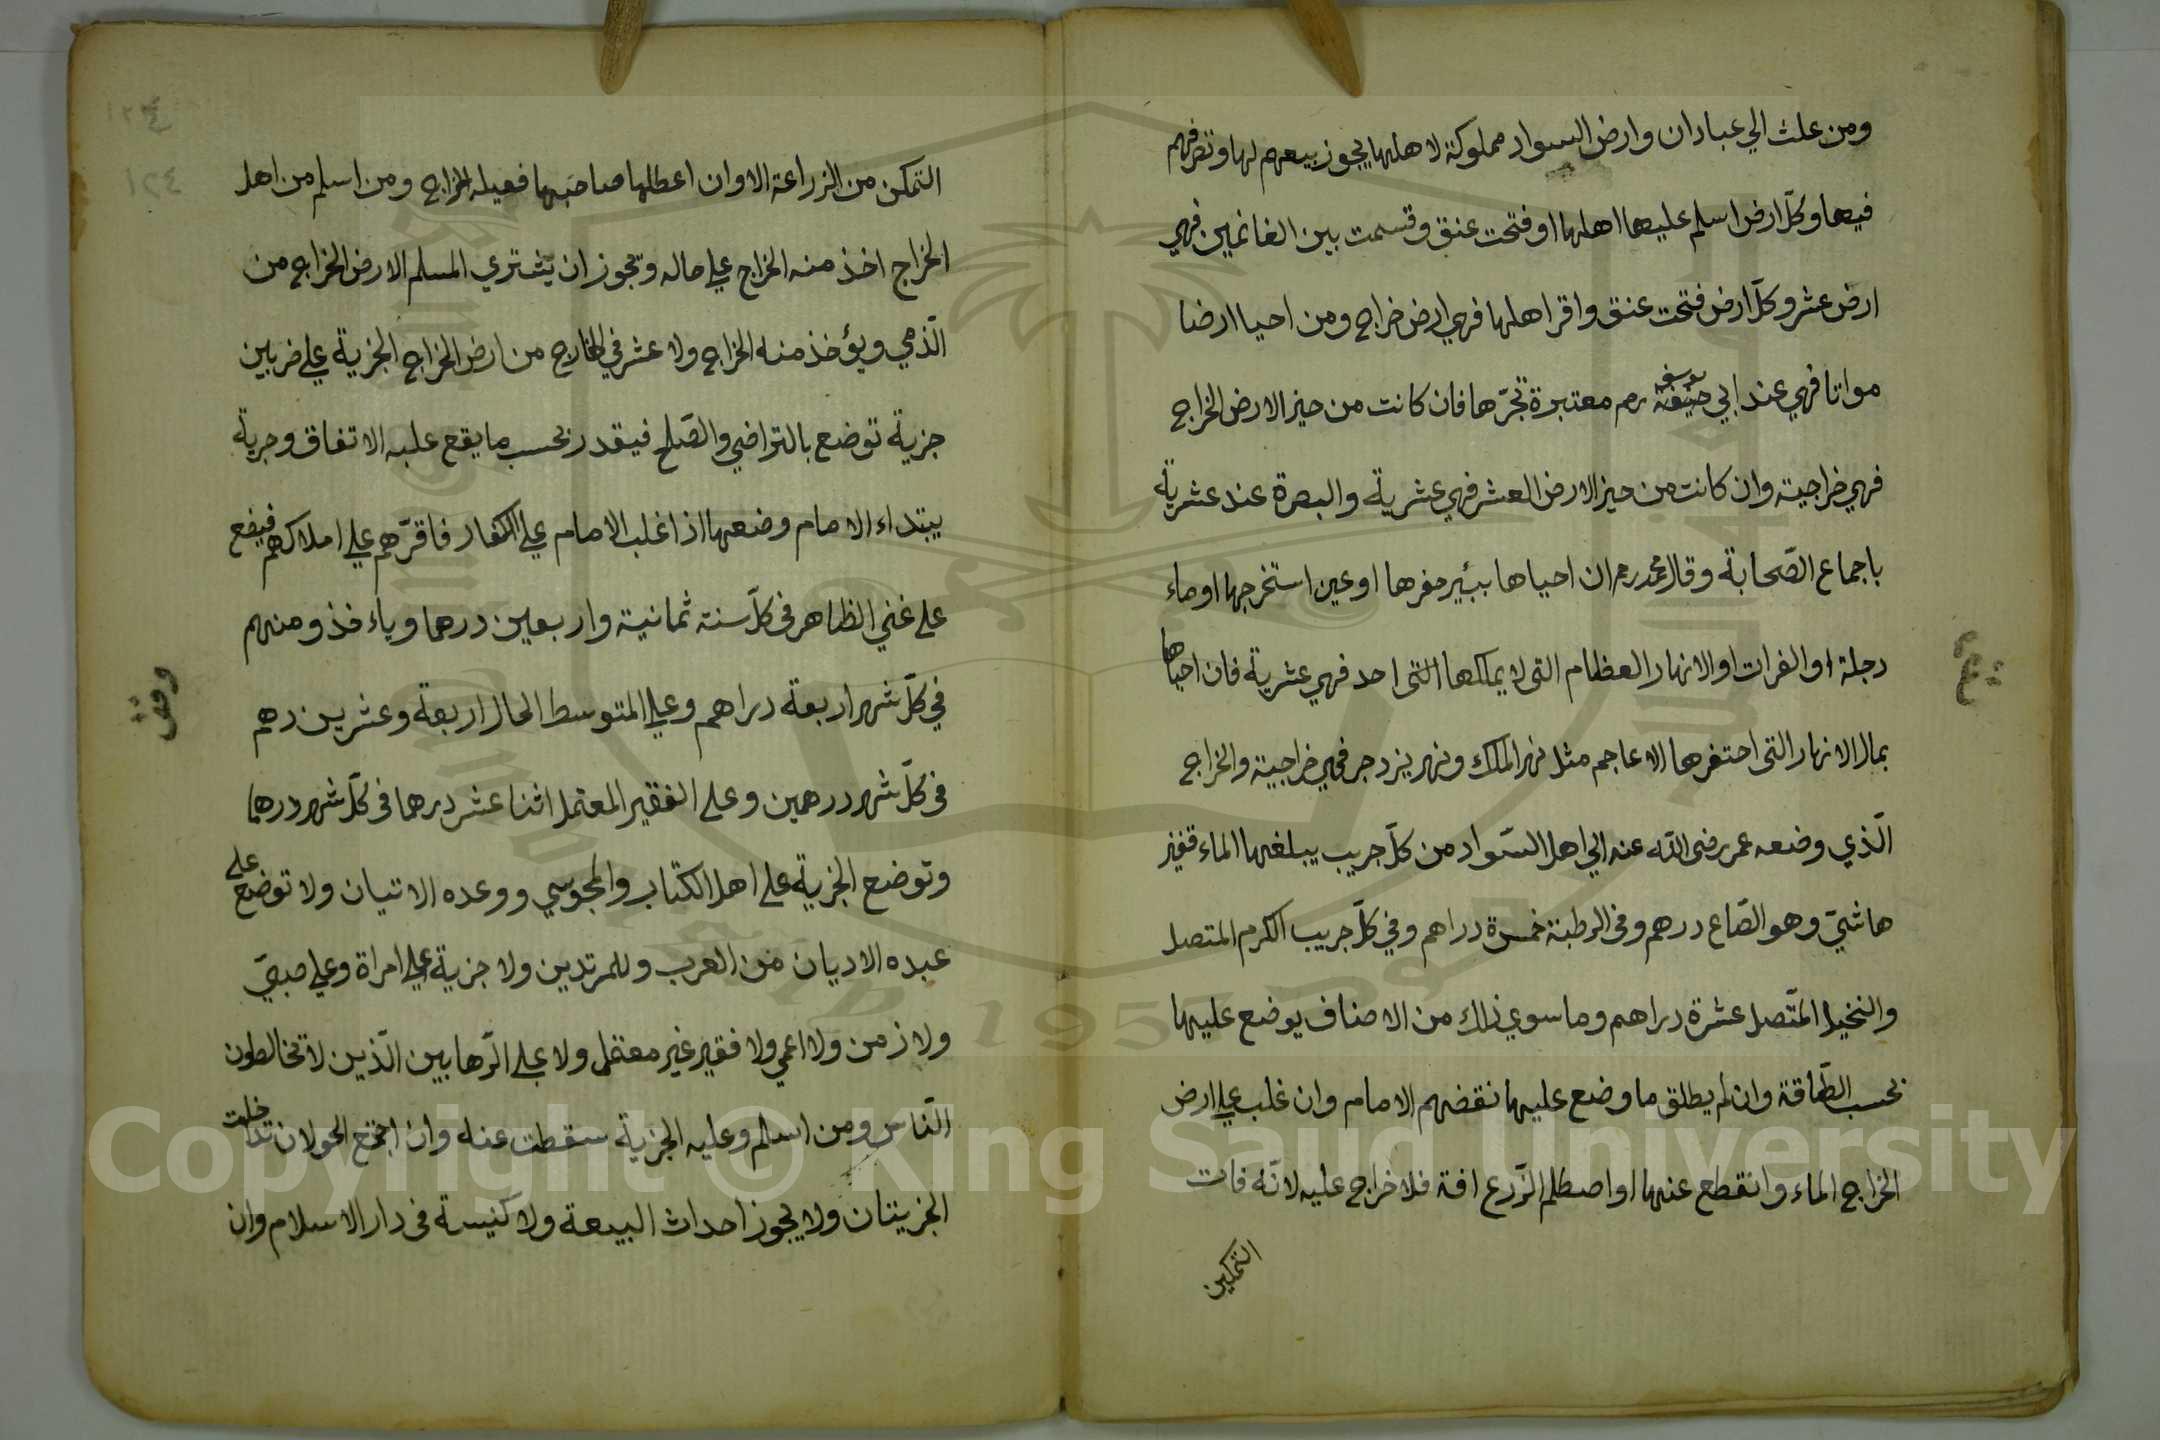 ومن علث الي عبادان وارض السواد مملوكة لاهلها يجوز بيعهم لها وتصرفهم
فيها وكلّ ارض اسلم عليها اهلها او فتحت عنق وقسمت بين الغانمين فهي
ارض عشر وكلّ ارض فتحت عنق واقر اهلها فهي ارض خراج ومن احيا ارضا
مواتا فهي عند ابي حنيفة يوسف رحم معتبرة تجرّها فان كانت من حيز الارض الخراج
فهي خراجية وان كانت من حيز الارض العشر فهي عشرية والبصرة عند عشرية
باجماع الصّحابة وقال محمد رحم ان احياها ببئير حفرها او عين استخرجها او ماء
دجلة او الفرات او الانهار العظام التى لا يملكها التى احد فهي عشرية فان احياها
بمال الانهار التى احتفرها الاعاجم مثل نهر الملك ونهر يزدجر فهي خراجية والخراج
الّذي وضعه عمر رضى اللّه عنه الي اهل السّواد من كلّ جريب يبلغها الماء قفيز
هاشميّ وهو الصّاع درهم وفى الرطبة خمسة دراهم وفي كلّ جريب الكرم المتصل
والنخيل المتّصل عشرة دراهم وما سوي ذلك من الاصناف يوضع عليها
بحسب الطّاقة وان لم يطلق ما وضع عليها نقضهم الامام وان غلب علي ارض
الخراج الماء وانقطع عنها او اصطلم الزّرع افة فلا خراج عليه لانّه فات
التمكين
التمكن من الزراعة الا وان اعطلها صاحبها فعيله الخراج ومن اسلم من اهل
الخراج اخذ منه الخراج علي حاله وتجوز ان يشتري المسلم الارض الخراج من
الّذمي ويؤخذ منه الخراج ولا عشر في الخارج من ارض الخراج الجزية علي ضربين
جزية توضع بالتراضي والصّلح فيقدر بحسب ما يقع عليه الاتفاق وجرية
يبتداء الامام وضعها اذا غلب الامام علي الكفار فاقرّهم علي املاكهم فيضع
على غني الظاهر فى كلّ سنة ثمانية واربعين درهما وياءخذ ومنهم
في كلّ شهر اربعة دراهم وعلي المتوسط الحال اربعة وعشرين رهم
فى كلّ شهر درهمين وعلى الفقير المعتمل اثنا عشر درهما فى كلّ شهر درهما
وتوضع الجزية على اهل الكتاب والمجوسي ووعده الاتيان ولا توضع على
عبده الاديان من العرب وللمرتدين ولا جزية علي امراة وعلي صبيّ
ولا زمن ولا اعمي ولا فقير غير معتمل ولا علي الرّهابين الّذين لا تخالطون
النّاس ومن اسلم وعليه الجزية سقطت عنه وان اجتمع الحولان تداخلت
الجزيتان ولا يجوز احداث البيعة ولا كنيسة فى دار الاسلام وان
وقف
٤٢١
Copyright © King Saud University
1957